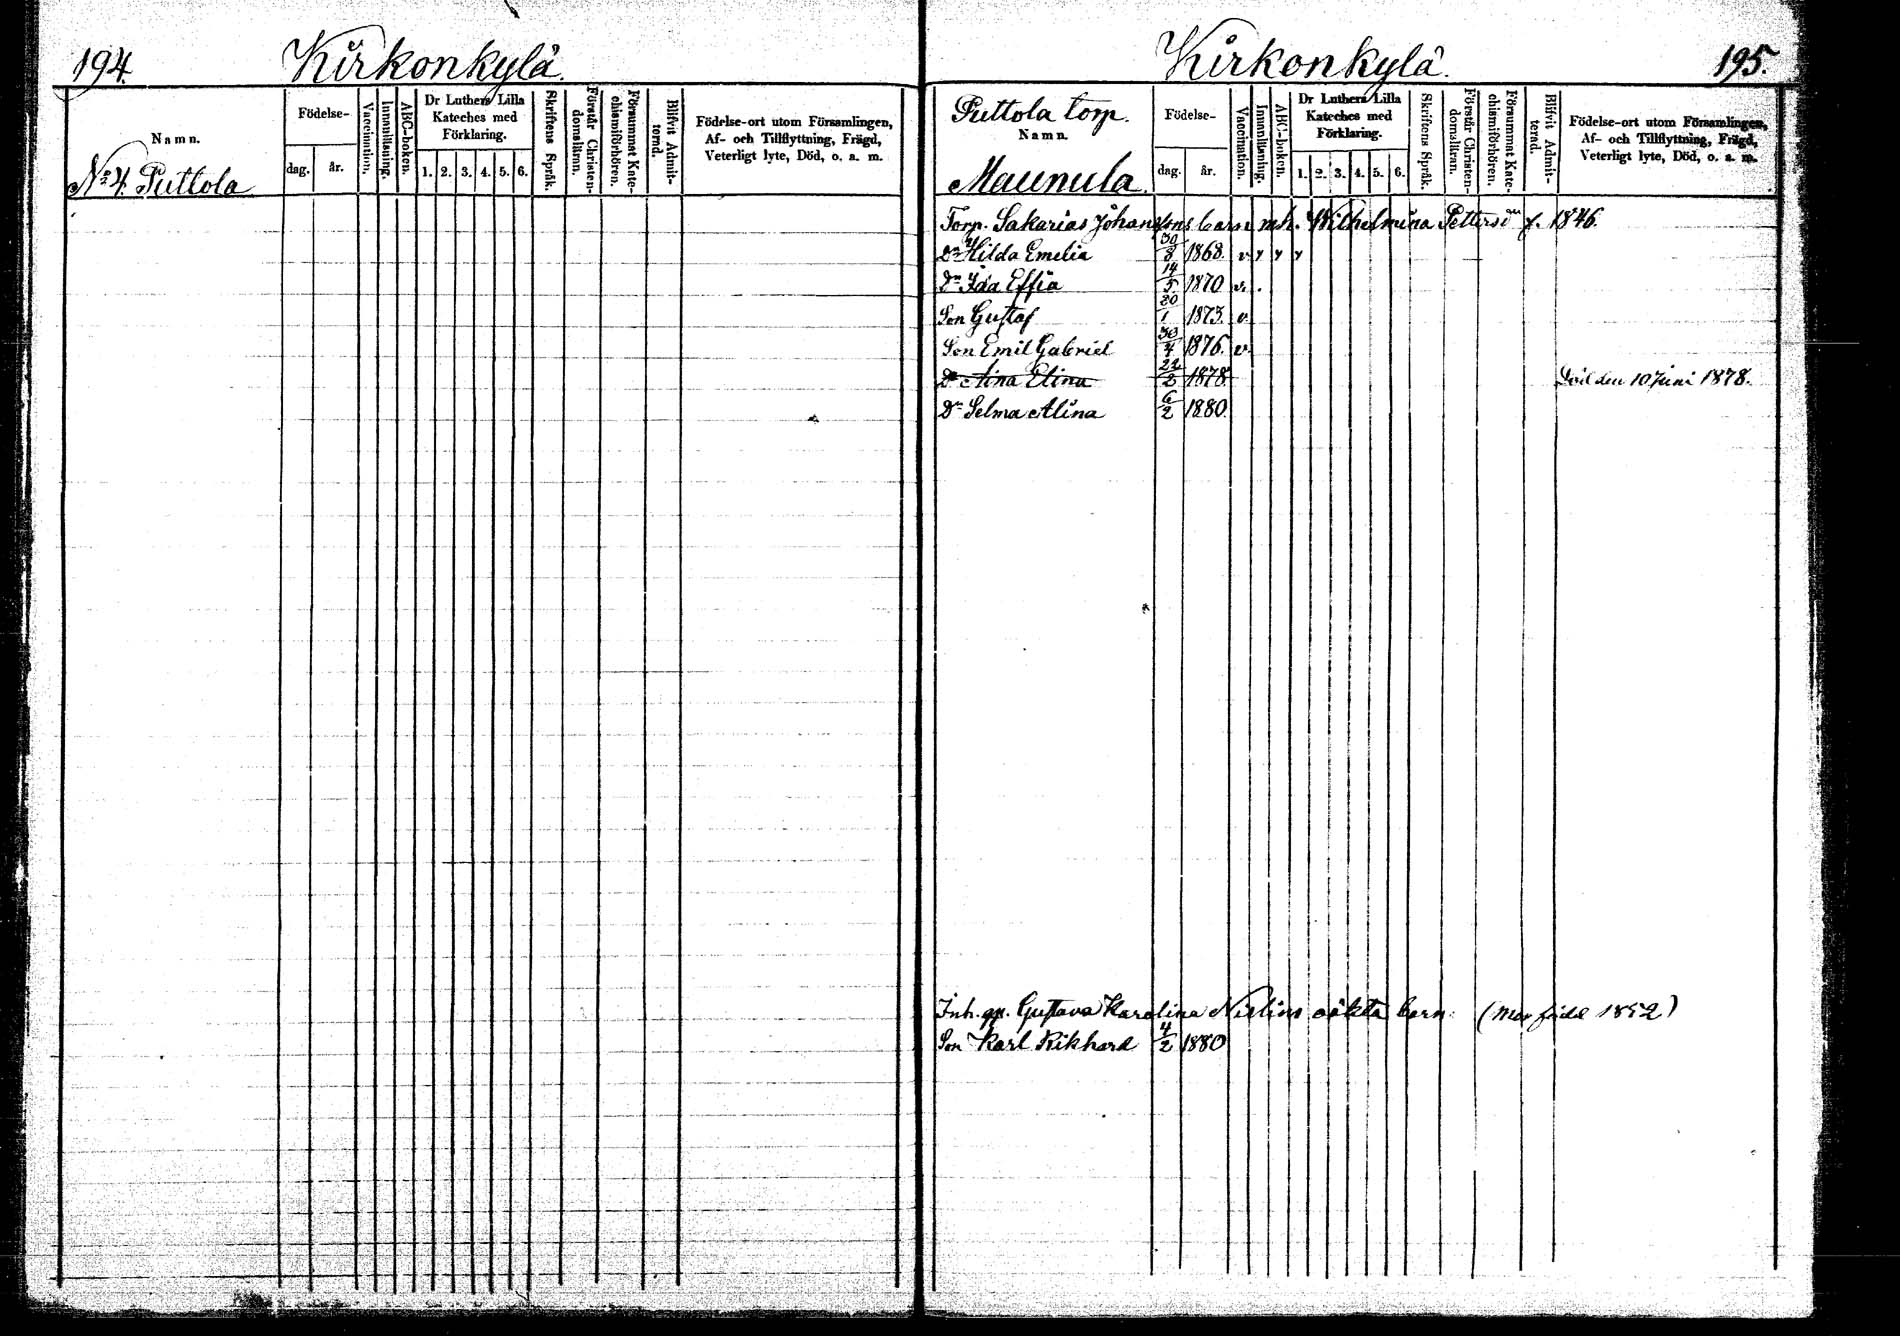 194.
Kirkonkylä.
Namn.
No 4. Puttola
Födelse-
dag.
år.
Vaccination.
Innanläsning.
ABC-boken.
Dr Luthers Lilla
Kateches med
Förklaring.
1. 2. 3. 4. 5. 6.
Skriftens Språk.
Förstår Christen-
domsläran.
Försummat Kate-
chismiförhören.
Blifvit Admit-
terad.
Födelse-ort utom Församlingen,
Af- och Tillflyttning, Frägd,
Veterligt lyte, Död, o. s. m.
Kirkonkylä.
195.
Puttola torp.
Namn.
Maunula.
Födelse-
dag.
år.
Vaccination.
Innanläsning.
ABC-boken.
Dr Luthers Lilla
Kateches med
Förklaring.
1. 2. 3. 4. 5. 6.
Skriftens Språk.
Förstår Christen-
domsläran.
Försummat Kate-
chismiförhören.
Blifvit Admit-
terad.
Födelse-ort utom Församlingen,
Af- och Tillflyttning, Frägd,
Veterligt lyte, Död, o. s. m.
Torp. Sakarias Johanssons barn mh. Wilhelmina Pettersdr f. 1846.
Dr Hilda Emelia 30/8 1868. v v v v
Dr Ida Effia 14/5 1870 v. .
Son Gustaf 20/1 1873. v.
Son Emil Gabriel 30/4 1876. v.
Dr Aina Elina 22/2 1878. Död den 10 Juni 1878.
Dr Selma Alina 6/2 1880.
Inh. qp. Gustava Karolina Nislins oäkta barn. (Mor född 1852)
Son Karl Rikhard 4/2 1880